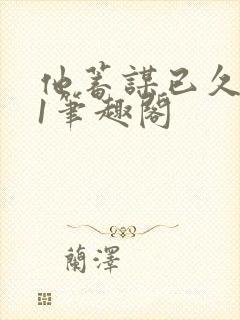 他蓄謀已久
1筆趣閣
蘭澤